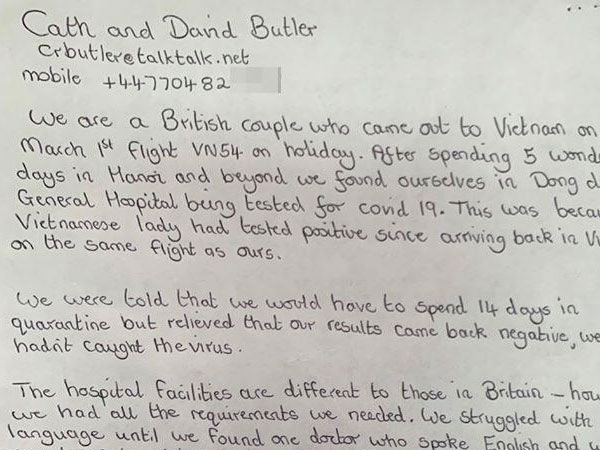 Cath and David Butler
crbutler@talktalk.net
mobile +44770482
We are a British couple who came out to Vietnam on
March 1st flight VN54 on holiday. After spending 5
days in Hanoi and beyond we found ourselves in Dong
General Hospital being tested for covid 19. This was
Vietnamese lady had tested positive since arriving back in
on the same flight as ours.
We were told that we would have to spend 14 days in
quarantine but relieved that our results came back negative, we
hadnit caught the virus.
The hospital facilities are different to those in Britain -
we had all the requirements we needed. We struggled with
language until we found one doctor who spoke English and